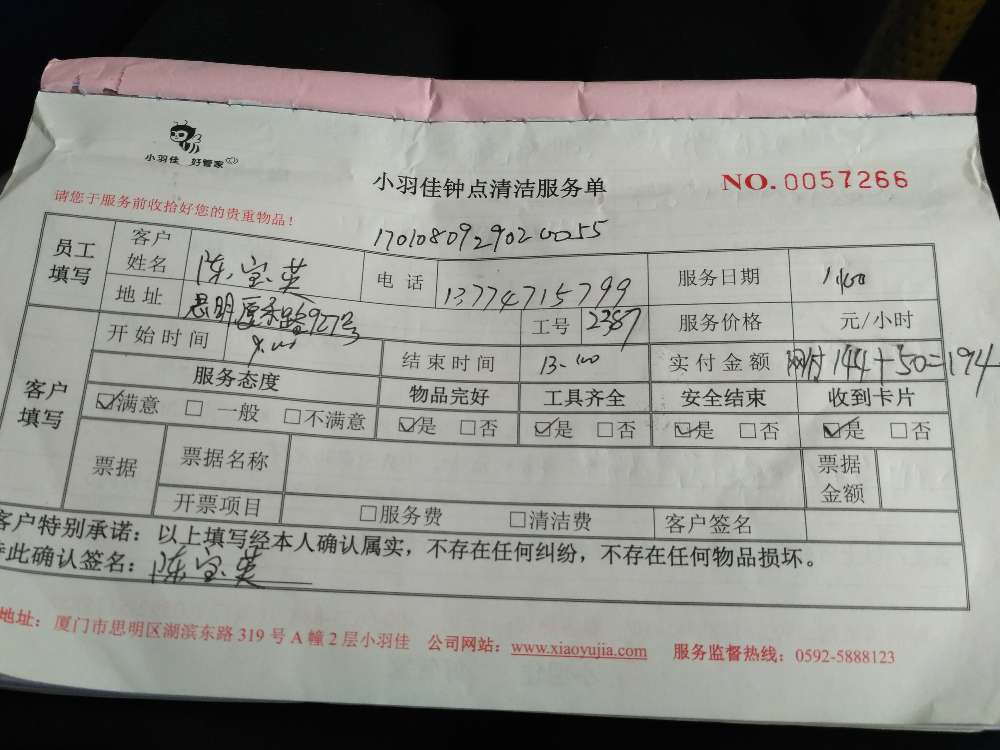 小羽佳 好管家
小羽佳钟点清洁服务单
NO. 0057266
请您于服务前收拾好您的贵重物品！
1701080929020055
员工填写 客户姓名 陈宝英 电话 13774715799 服务日期
地址 思明厦禾路927号 工号 2387 服务价格 元/小时
客户填写 开始时间 9.00 结束时间 13.00 实付金额 网付144+50=194
服务态度 物品完好 工具齐全 安全结束 收到卡片
☑满意 □一般 □不满意 ☑是 □否 ☑是 □否 ☑是 □否 ☑是 □否
票据 票据名称 票据金额
开票项目 □服务费 □清洁费 客户签名
客户特别承诺：以上填写经本人确认属实，不存在任何纠纷，不存在任何物品损坏。
此确认签名：陈宝英
地址：厦门市思明区湖滨东路319号A幢2层小羽佳 公司网站：www.xiaoyujia.com 服务监督热线：0592-5888123